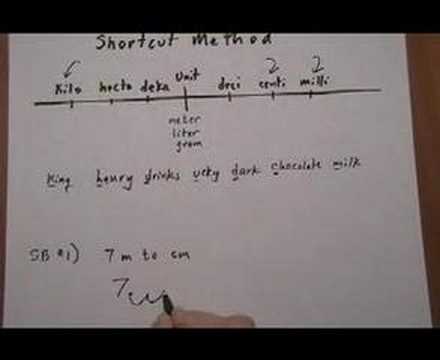 Shortcut Method
Kilo hecto deka Unit deci centi milli
meter
liter
gram
King henry drinks ucky dark chocolate milk
SB #1) 7 m to cm
7